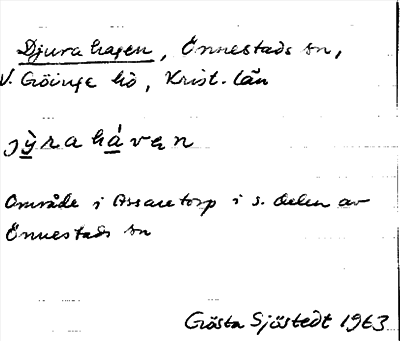 Djurahagen, Önnestads sn,
V. Göinge hd, Krist. län
jỳraháven
Område i Assaretorp i s. delen av
Önnestads sn
Gösta Sjöstedt 1963